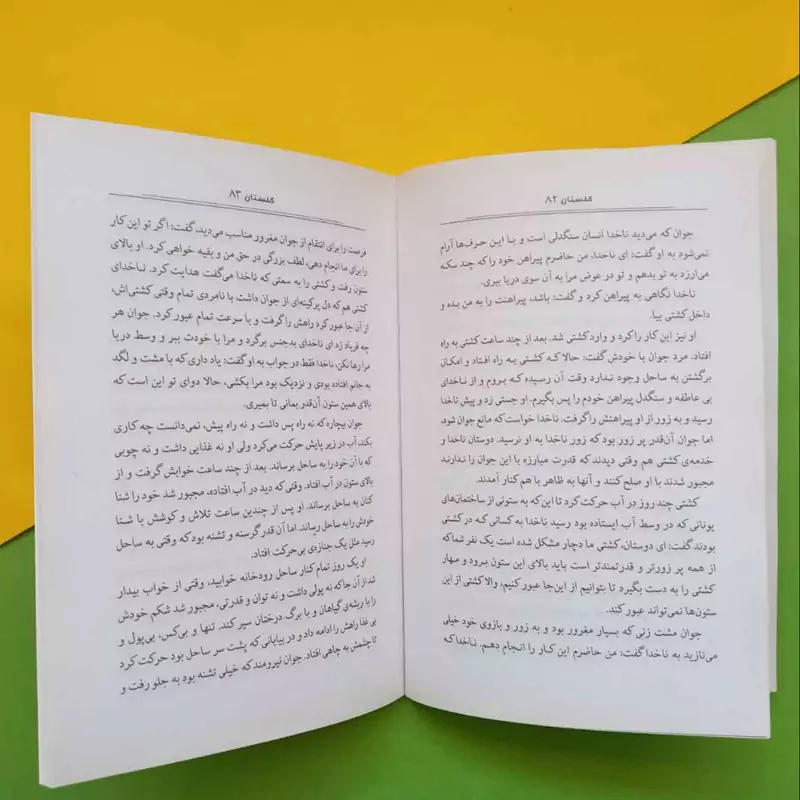 گلستان ۸۲
جوان که می‌دید ناخدا انسان سنگدلی است و با این حرف‌ها آرام
نمی‌شود به او گفت: ای ناخدا، من حاضرم پیراهن خود را که چند سکه
می‌ارزد به تو بدهم و تو در عوض مرا به آن سوی دریا ببری.
ناخدا نگاهی به پیراهن کرد و گفت: باشد، پیراهنت را به من بده و
داخل کشتی بیا.
او نیز این کار را کرد و وارد کشتی شد. بعد از چند ساعت کشتی به راه
افتاد. مرد جوان با خودش گفت: حالا که کشتی به راه افتاد و امکان
برگشتن به ساحل وجود ندارد وقت آن رسیده که بروم و از ناخدای
بی عاطفه و سنگدل پیراهن خودم را پس بگیرم. او جستی زد و پیش ناخدا
رسید و به زور از او پیراهنش را گرفت. ناخدا خواست که مانع جوان شود،
اما جوان آن‌قدر پر زور بود که زور ناخدا به او نرسید. دوستان ناخدا و
خدمه‌ی کشتی هم وقتی دیدند که قدرت مبارزه با این جوان را ندارند
مجبور شدند با او صلح کنند و آنها به ظاهر با هم کنار آمدند.
کشتی چند روز در آب حرکت کرد تا این‌که به ستونی از ساختمان‌های
یونانی که در وسط آب ایستاده بود رسید ناخدا به کسانی که در کشتی
بودند گفت: ای دوستان، کشتی ما دچار مشکل شده است یک نفر شما که
از همه پر زورتر و قدرتمندتر است باید بالای این ستون برود و مهار
کشتی را به دست بگیرد تا بتوانیم از این‌جا عبور کنیم؛ والا کشتی از این
ستون‌ها نمی‌تواند عبور کند.
جوان مشت زنی که بسیار مغرور بود و به زور و بازوی خود خیلی
می‌نازید به ناخدا گفت: من حاضرم این کار را انجام دهم. ناخدا که
گلستان ۸۳
فرصت را برای انتقام از جوان مغرور مناسب می‌دید، گفت: اگر تو این کار
را برای ما انجام دهی، لطف بزرگی در حق من و بقیه خواهی کرد. او بالای
ستون رفت و کشتی را به سمتی که ناخدا می‌گفت هدایت کرد. ناخدای
کشتی هم که دل پرکینه‌ای از جوان داشت با نامردی تمام وقتی کشتی‌اش،
از آن جا عبور کرد راهش را گرفت و با سرعت تمام عبور کرد. جوان هر
چه فریاد زد ای ناخدای بدجنس برگرد و مرا با خودت ببر و وسط دریا
مرا رها نکن، ناخدا فقط در جواب به او گفت: یاد داری که با مشت و لگد
به جانم افتاده بودی و نزدیک بود مرا بکشی، حالا دوای تو این است که
بالای همین ستون آن‌قدر بمانی تا بمیری.
جوان بیچاره که نه راه پس داشت و نه راه پیش، نمی‌دانست چه کاری
بکند. آب در زیر پایش حرکت می‌کرد ولی او نه غذایی داشت و نه چوبی
که با آن خود را به ساحل برساند. بعد از چند ساعت خوابش گرفت و از
بالای ستون در آب افتاد. وقتی که دید در آب افتاده، مجبور شد خود را شنا
کنان به ساحل برساند. او پس از چندین ساعت تلاش و کوشش با شنا
خودش را به ساحل رساند. اما آن قدر گرسنه و تشنه بود که وقتی به ساحل
رسید مثل یک جنازه‌ی بی‌حرکت افتاد.
او یک روز تمام کنار ساحل رودخانه خوابید، وقتی از خواب بیدار
شد از آن جا که نه پولی داشت و نه توان و قدرتی، مجبور شد شکم خودش
را با ریشه‌ی گیاهان و با برگ درختان سیر کند. تنها و بی‌کس، بی‌پول و
بی غذا راهش را ادامه داد و در بیابانی که پشت سر ساحل بود حرکت کرد
تا چشمش به چاهی افتاد. جوان نیرومند که خیلی تشنه بود به جلو رفت و